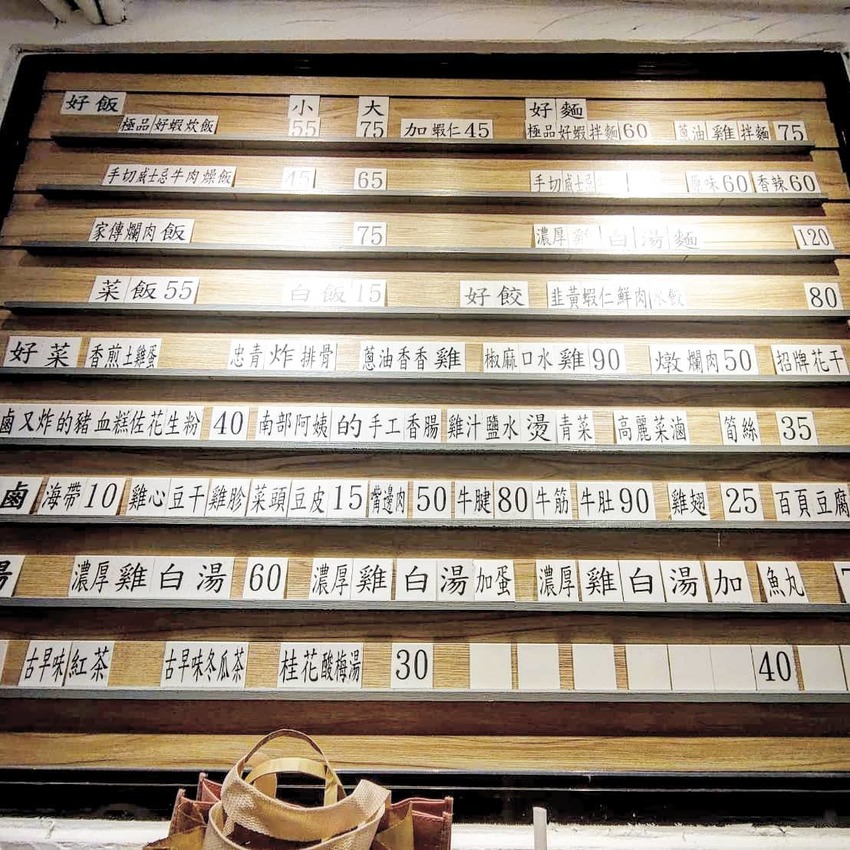 好飯 小 大 好麵
極品好蝦炊飯 55 75 加蝦仁45 極品好蝦拌麵60 蔥油雞拌麵 75
手切威士忌牛肉燥飯 45 65 手切威士忌 原味60 香辣60
家傳爛肉飯 75 濃厚雞白湯麵 120
菜飯55 白飯15 好餃 韭黃蝦仁鮮肉水餃 80
好菜 香煎土雞蛋 忠青炸排骨 蔥油香香雞 椒麻口水雞90 燉爛肉50 招牌花干
鹵又炸的豬血糕佐花生粉 40 南部阿姨的手工香腸 雞汁鹽水燙青菜 高麗菜滷 筍絲 35
鹵 海帶10 雞心豆干雞胗菜頭豆皮15 嘴邊肉50 牛腱80牛筋牛肚90 雞翅 25 百頁豆腐
湯 濃厚雞白湯 60 濃厚雞白湯加蛋 濃厚雞白湯加魚丸 7
古早味紅茶 古早味冬瓜茶 桂花酸梅湯 30 40